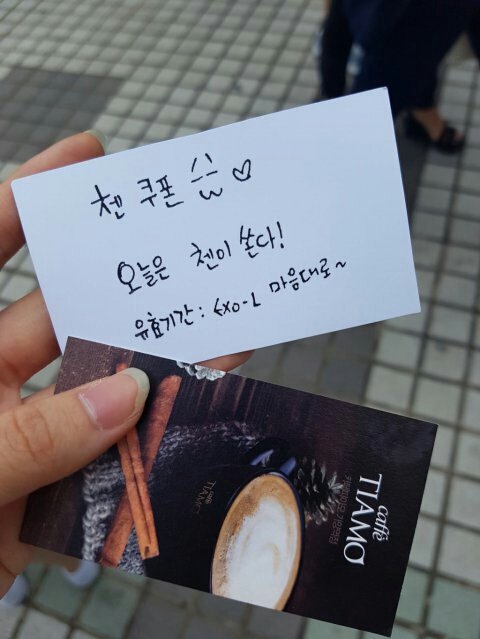 첸 쿠폰 ♡
오늘은 첸이 쏜다!
유효기간 : EXO-L 마음대로~
caffè
TIAMO
caffé
TIAMO